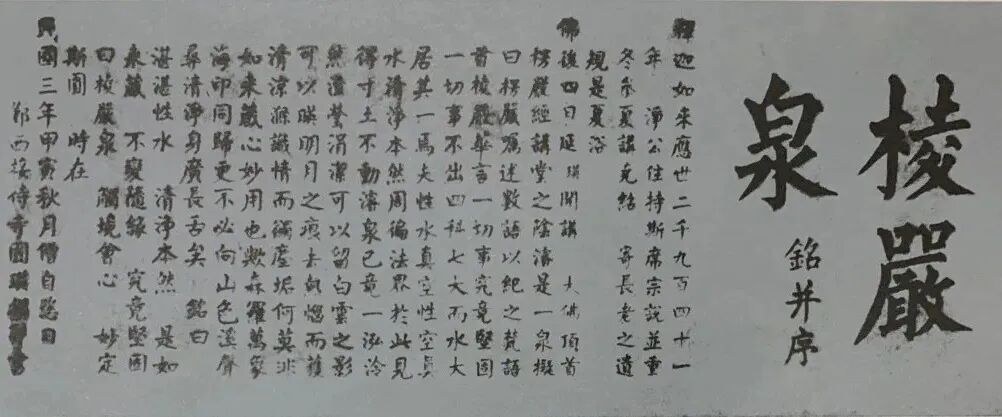 棱嚴
泉
銘并序
釋迦如來應世二千九百四十一
年 淨公住持斯席宗說並重
冬參夏講克結 寄長老之遺
規是夏浴
佛後四日延瑛開講 大佛頂首
楞嚴經講堂之陰濬是一泉擬
曰楞嚴囑述數語以紀之梵語
首棱嚴華言一切事究竟堅固
一切事不出四科七大而水大
居其一焉夫性水真空性空真
水清淨本然周徧法界於此見
得寸土不動濬泉已竟一泓泠
然澄瑩涓潔可以留白雲之影
可以暎明月之痕去惱而獲
清涼滌識情而蠲塵垢何莫非
如來藏心妙用也歟森羅萬象
海印同歸更不必向山色溪聲
尋清淨身廣長舌矣 銘曰
湛湛性水 清淨本然 是如
來藏 不變隨緣 究竟堅固
曰棱嚴泉 觸境會心 妙定
斯圓 時在
民國三年甲寅秋月僧自恣日
鄮西接待寺圓瑛